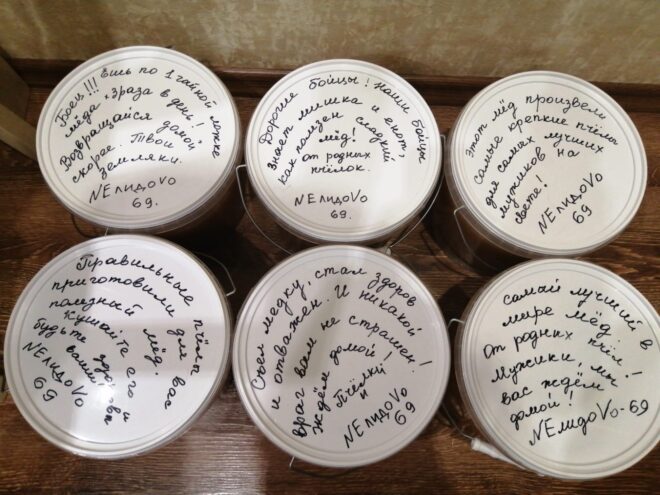 Боец!!! Ешь по 1 чайной ложке
мёда, 3 раза в день!
Возвращайся домой
скорее. Твои
земляки.
NЕлидоVо
69.
Дорогие бойцы! Наши бойцы
Знает мишка и енот,
как полезен сладкий
мёд!
от родных
пчёлок.
NЕлидоVо
69.
Этот мёд произвели
самые крепкие пчёлы
для самых лучших
мужиков на
свете!
NЕлидоVо
69
Правильные пчёлы
приготовили для вас
полезный мёд.
Кушайте его и
будьте здоровы
NЕлидоVо
69
Съел медку, стал здоров
и отважен. И никакой
враг вам не страшен!
Ждём домой!
Пчёлки
NЕлидоVо
69
самай лучший в
мире мёд.
От родных пчёл!
Мужики, мы
вас ждём
домой!
NЕлидоVо-69